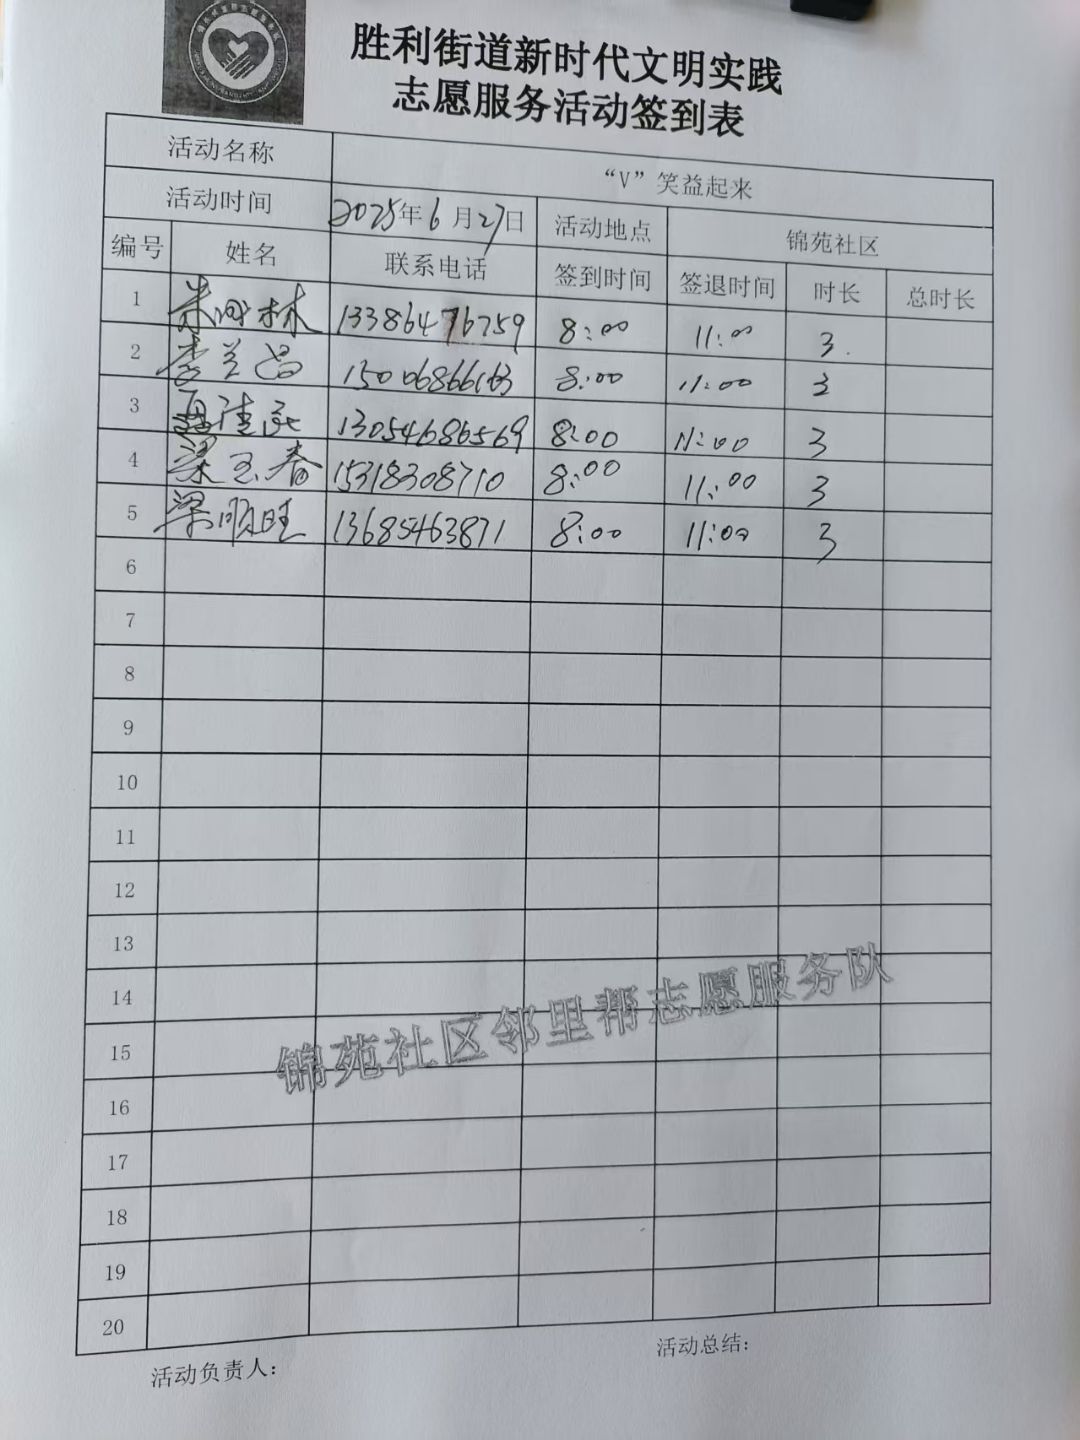 胜利街道新时代文明实践
志愿服务活动签到表
活动名称 “V”笑益起来
活动时间 2025年6月27日 活动地点 锦苑社区
编号 姓名 联系电话 签到时间 签退时间 时长 总时长
1 林 13386476759 8:00 11:00 3
2 李兰昌 15006866163 8:00 11:00 3
3 13054686569 8:00 11:00 3
4 梁玉春 15318308710 8:00 11:00 3
5 梁顺旺 13685463871 8:00 11:00 3
6
7
8
9
10
11
12
13
14
15
16
17
18
19
20
锦苑社区邻里帮志愿服务队
活动负责人： 活动总结：